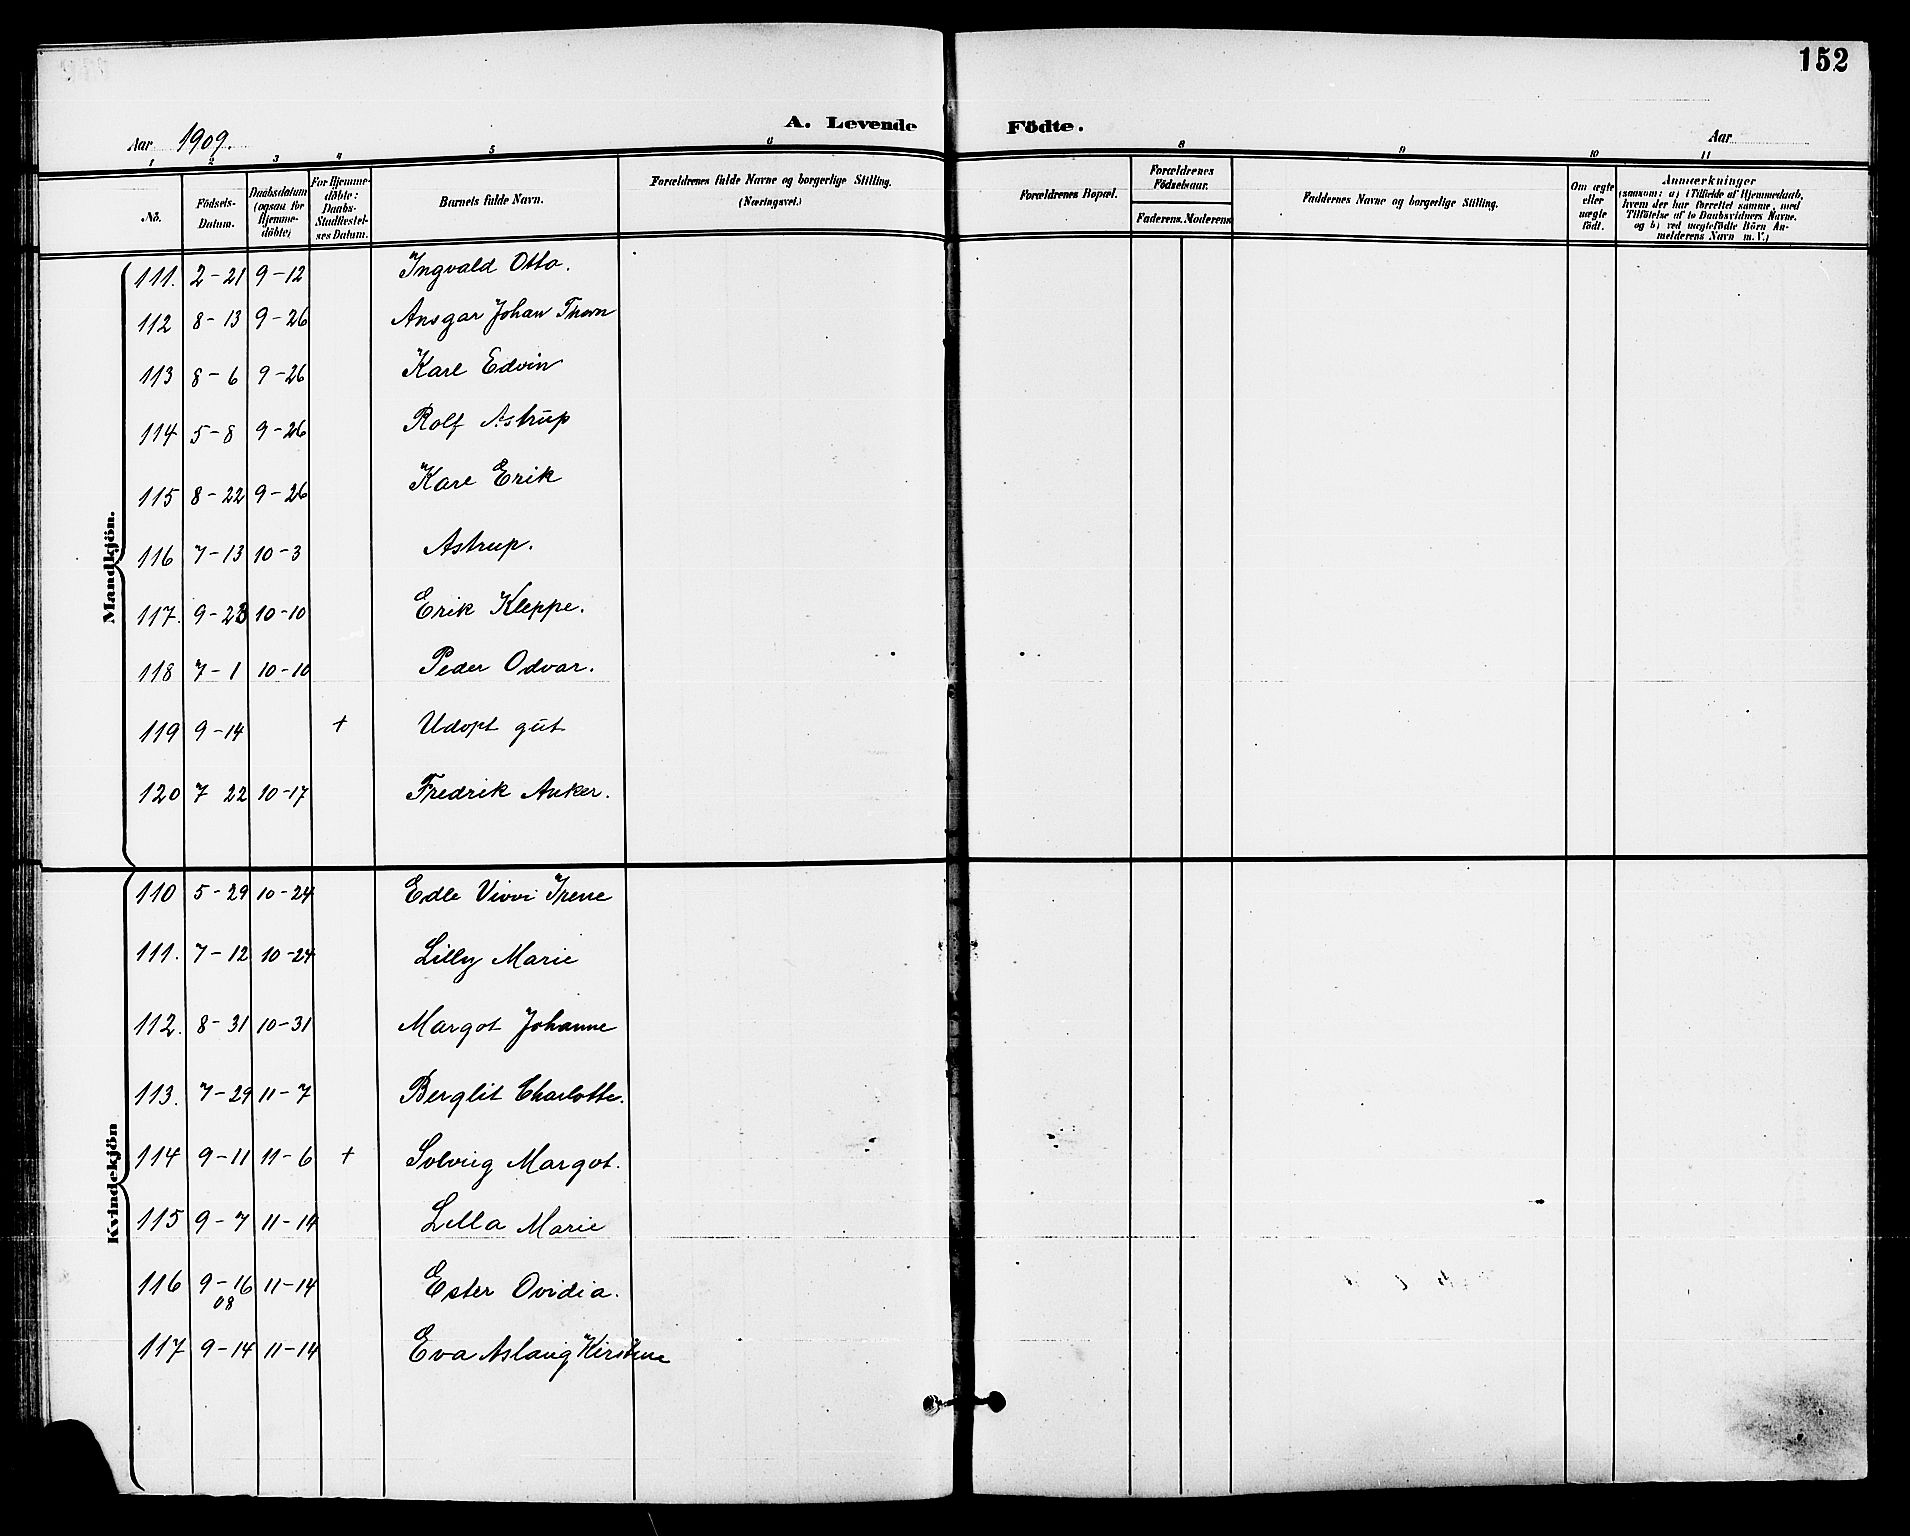 152
A. Levende Födte.
Aar 1909.
Aar
1 2 3 4 5 6 8 9 10 11
No.
Födsels-Datum.
Daabsdatum (ogsaa for Hjemme-döbte)
For Hjemme-döbte: Daabs-Stadfæstel-ses Datum.
Barnets fulde Navn.
Forældrenes fulde Navne og borgerlige Stilling. (Næringsvei.)
Forældrenes Bopæl.
Forældrenes Födselsaar.
Faderens. Moderens.
Faddernes Navne og borgerlige Stilling.
Om ægte eller uægte födt.
Anmærkninger
(saasom: a) i Tilfælde af Hjemmedaab, hvem der har forrettet samme, med Tilföielse af to Daabsvidners Navne. og b) ved uægtefödte Börn An-melderens Navn m. V.)
Mandkjön.
111. 2-21 9-12 Ingvald Otto.
112 8-13 9-26 Ansgar Johan Thorn
113 8-6 9-26 Kare Edvin
114 5-8 9-26 Rolf Astrup
115 8-22 9-26 Kare Erik
116 7-13 10-3 Astrup.
117. 9-23 10-10 Erik Kleppe.
118 7-1 10-10 Peder Odvar.
119 9-14 + Udøpt gut
120 7 22 10-17 Fredrik Anker.
Kvindekjön
110 5-29 10-24 Edle Vivvi Irene
111. 7-12 10-24 Lilly Marie
112. 8-31 10-31 Margot Johanne
113. 7-29 11-7 Berglit Charlotte.
114 9-11 11-6 + Solveig Margot.
115 9-7 11-14 Lilla Marie
116 9-16 11-14 Ester Ovidia.
08
117 9-14 11-14 Eva Aslaug Kirstine